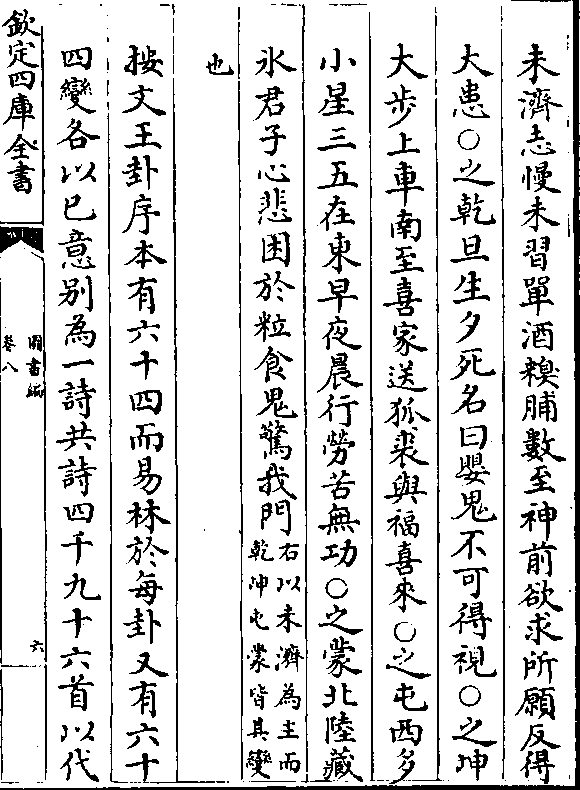 未濟志慢未習單酒糗脯數至神前欲求所願反得
大患○之乾旦生夕死名曰嬰鬼不可得視○之坤
大步上車南至喜家送狐裘與福喜來○之屯西多
小星三五在東早夜晨行勞苦無功○之蒙北陸藏
氷君子心悲困於粒食鬼驚我門右以未濟為主而
乾坤屯蒙皆其變
也
按文王卦序本有六十四而易林於每卦又有六十
四變各以已意别為一詩共詩四千九十六首以代
欽定四庫全書
圖書編
卷八
六